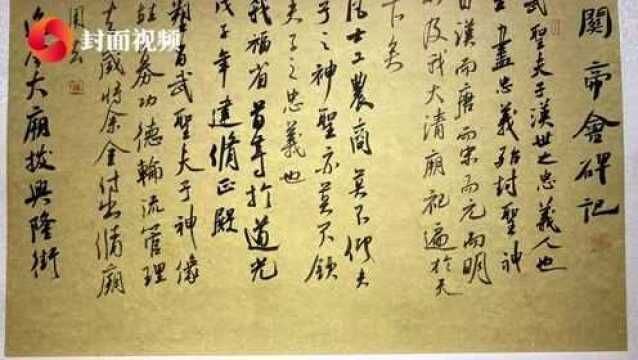 封面视频
關帝會碑記
武聖夫子漢世之忠義人也
盡忠義殆封聖神
自漢而唐而宋而元而明
以及我大清廟祀遍於天
下矣
凡士工農商莫不仰夫
子之神聖亦莫不欽
夫子之忠義也
我福省首等於道光
戊子年建脩正殿
塑有武聖夫子神像
功德輪流管理
歲將余金付出脩廟
大廟拔興隆街